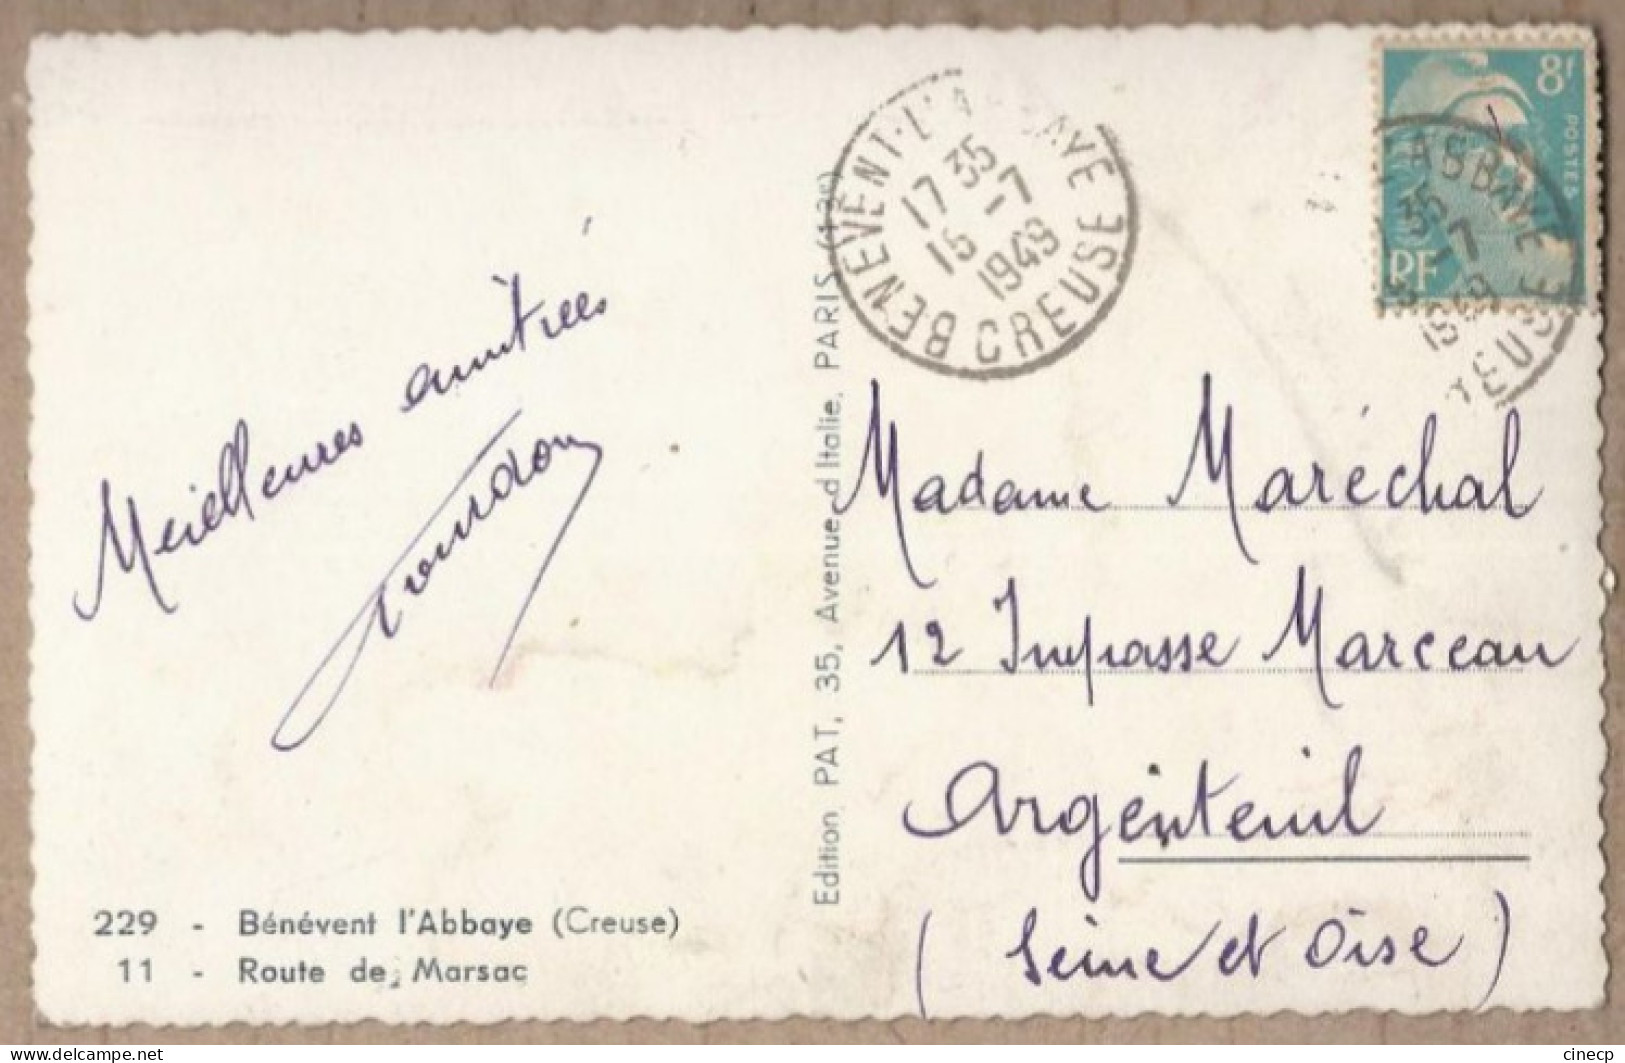 Meilleures amitiés
229 - Bénévent l'Abbaye (Creuse)
11 - Route de Marsac
Edition PAT, 35, Avenue d'Italie, PARIS (13e)
BENEVENT-L'ABBAYE
17 35
15 - 7
1949
CREUSE
8f
POSTES
RF
Madame Maréchal
12 Impasse Marceau
Argenteuil
(Seine et Oise)
delcampe.net
cinecp